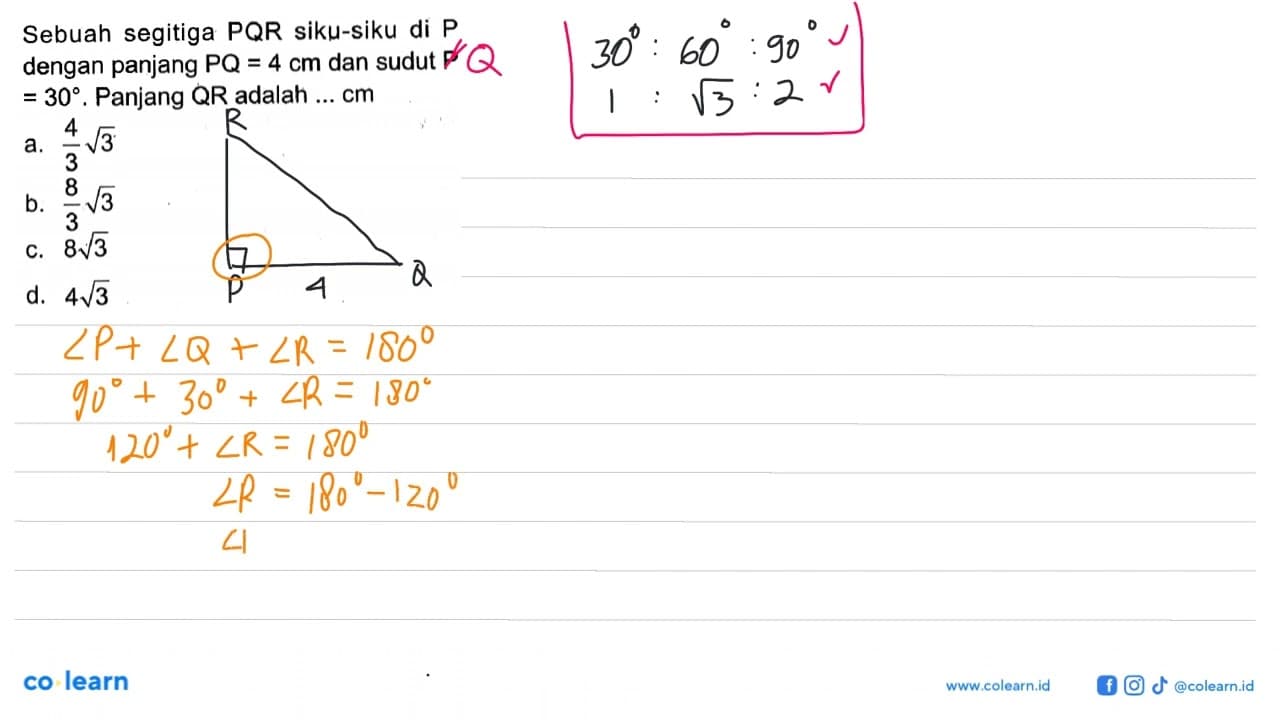 Sebuah segitiga PQR siku-siku di P
dengan panjang PQ = 4 cm dan sudut P Q
= 30°. Panjang QR adalah ... cm
a. 4/3 √3
b. 8/3 √3
c. 8√3
d. 4√3
R
P 4 Q
30° : 60° : 90° ✓
1 : √3 : 2 ✓
∠P + ∠Q + ∠R = 180°
90° + 30° + ∠R = 180°
120° + ∠R = 180°
∠R = 180° - 120°
∠
co learn
www.colearn.id
@colearn.id